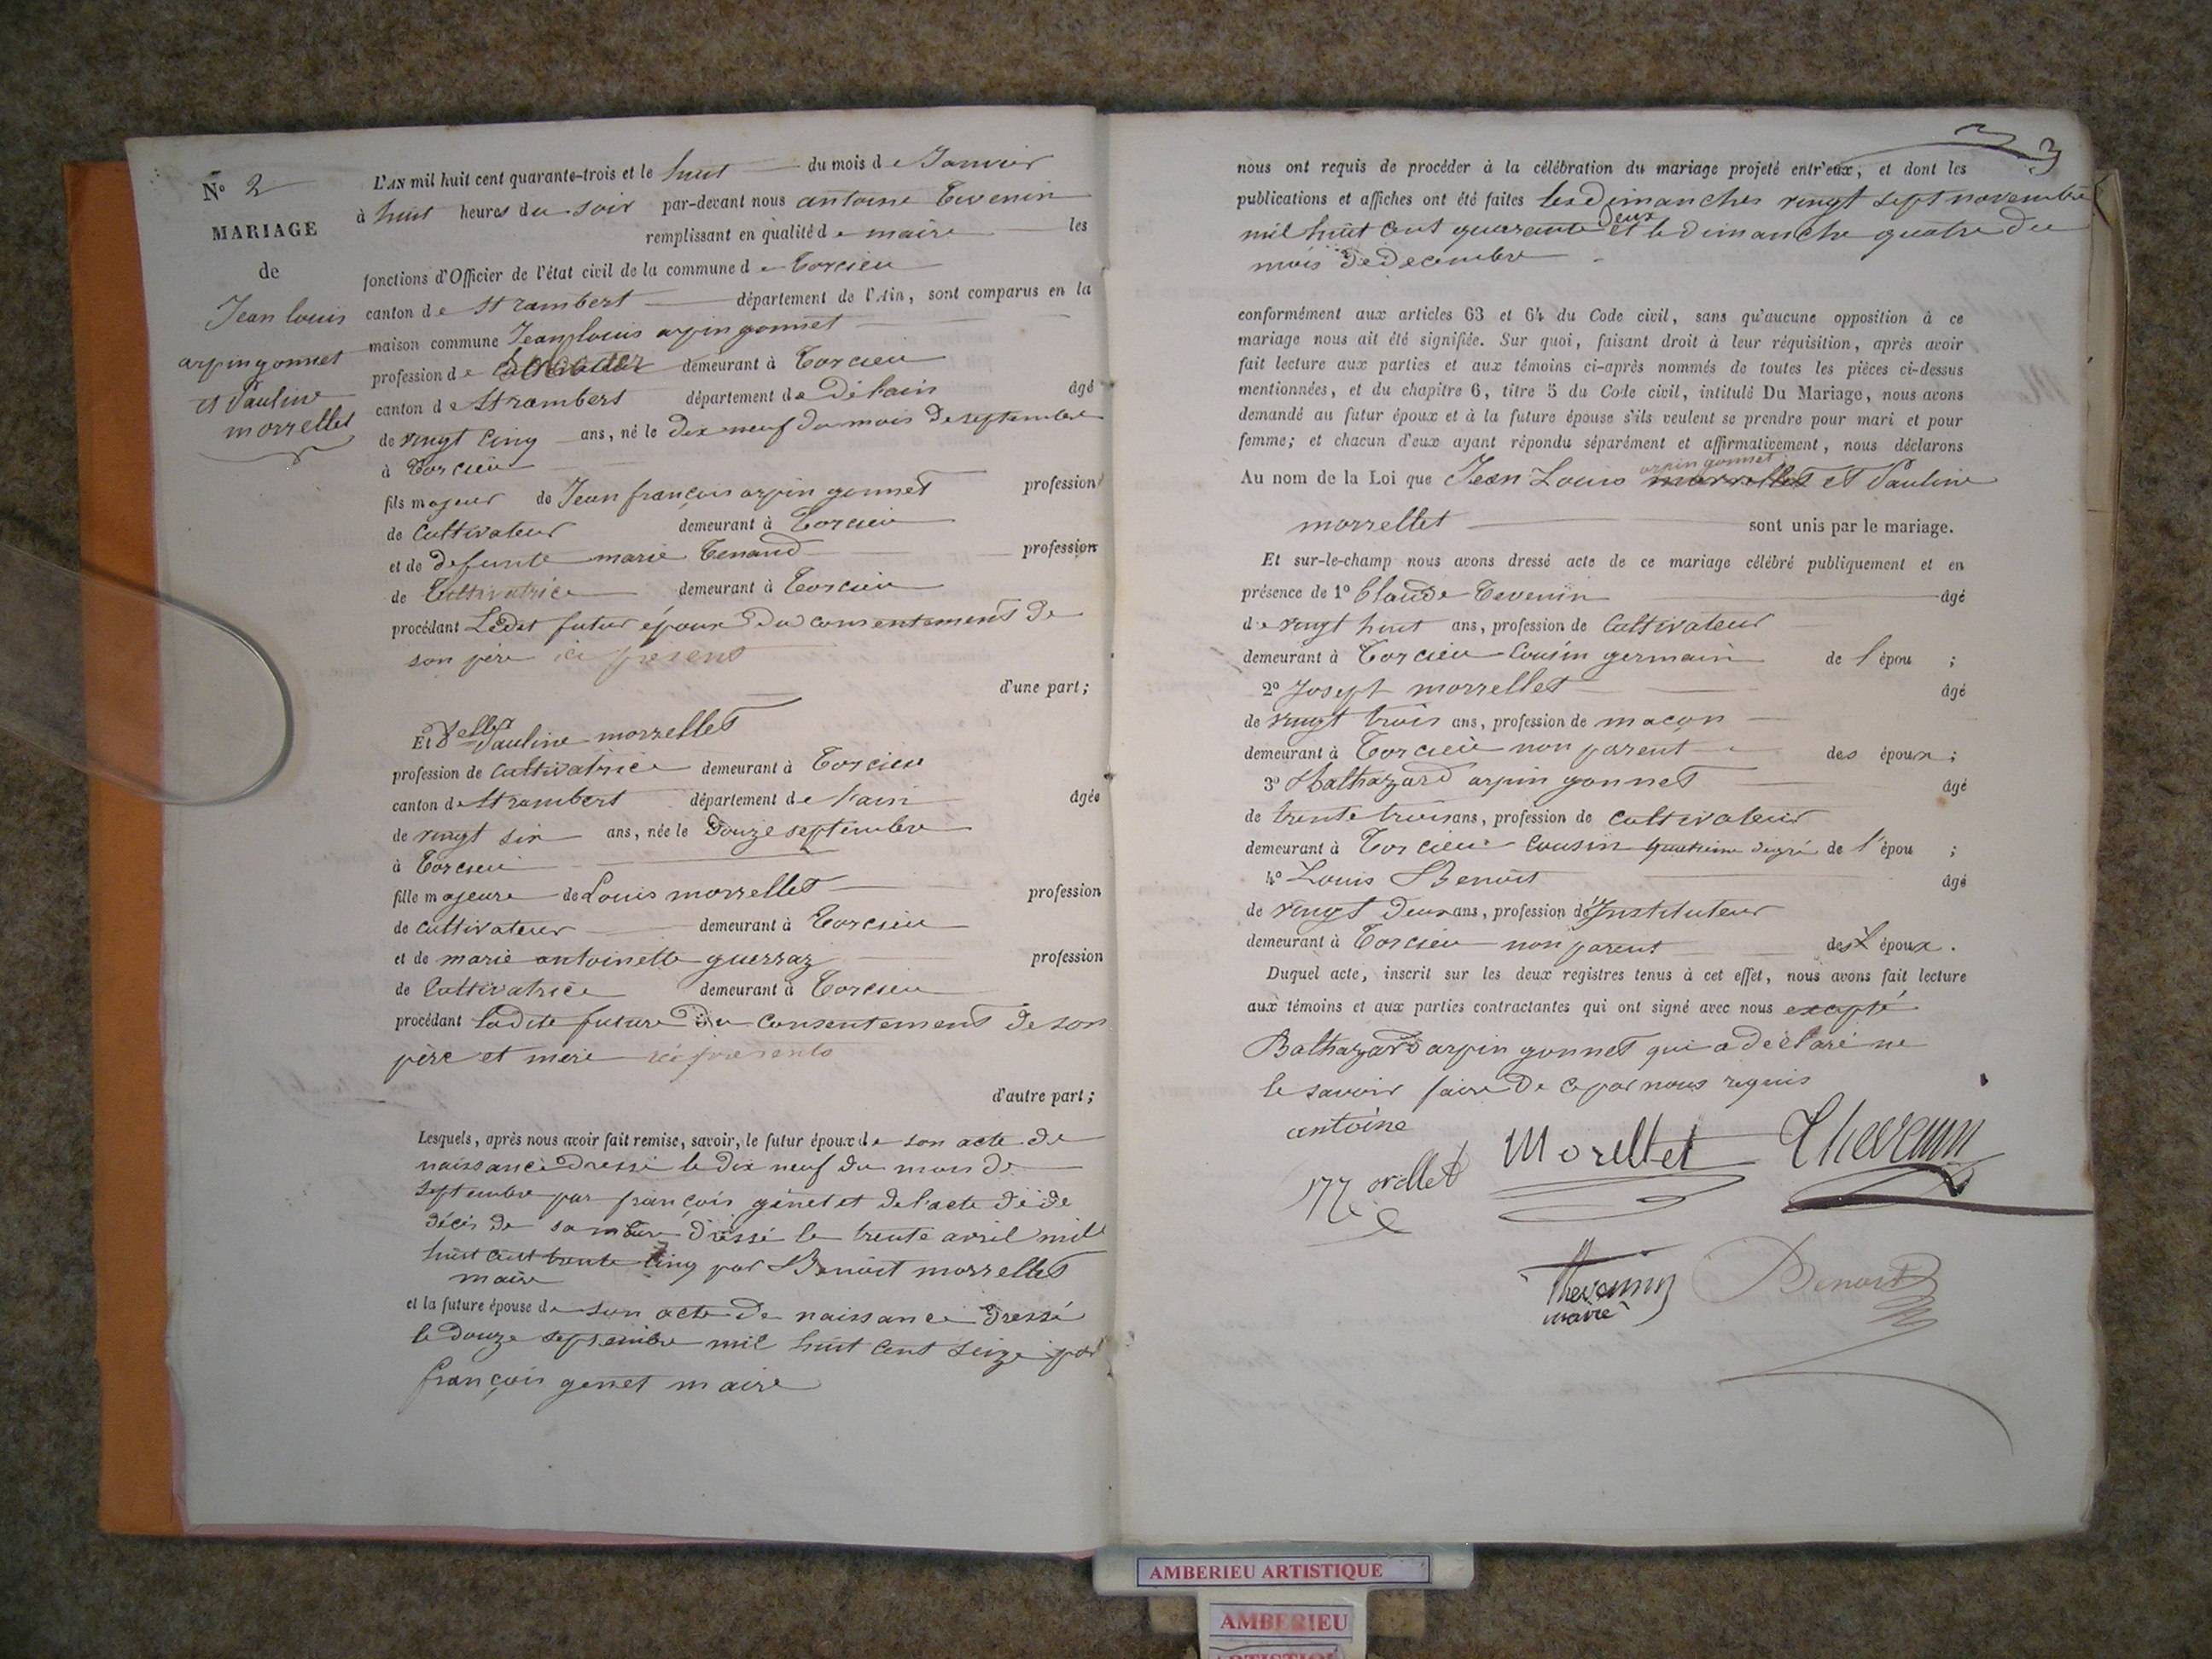 N° 2
MARIAGE
de
Jean louis
arpingonnet
et Pauline
morrellet
L'AN mil huit cent quarante-trois et le huit du mois de Janvier
à huit heures du soir par-devant nous antoine Tevenin
remplissant en qualité de maire les
fonctions d'Officier de l'état civil de la commune de Torcieu
canton de St rambert département de l'Ain, sont comparus en la
maison commune Jean louis arpin gonnet
profession de demeurant à Torcieu
canton de St rambert département de De l'ain âgé
de vingt cinq ans, né le dix neuf du mois de septembre
à Torcieu
fils majeur de Jean françois arpin gonnet profession
de Cultivateur demeurant à Torcieu
et de defunte marie Tenand profession
de Cultivatrice demeurant à Torcieu
procédant Ledit futur époux du consentement de
son père ici present
d'une part;
Et delle Pauline morrellet
profession de cultivatrice demeurant à Torcieu
canton de St rambert département de l'ain âgée
de vingt six ans, née le Douze septembre
à Torcieu
fille majeure de Louis morrellet profession
de cultivateur demeurant à Torcieu
et de marie antoinette guerraz profession
de Cultivatrice demeurant à Torcieu
procédant Ladite future du consentement de son
père et mère ici presents
d'autre part;
Lesquels, après nous avoir fait remise, savoir, le futur époux de son acte de
naissance dressé le dix neuf du mois de
septembre par françois génet et de l'acte de de
décès de sa mère dressé le trente avril mil
huit cent trente cinq par Benoit morrellet
maire
et la future épouse de son acte de naissance dressé
le douze septembre mil huit cent seize par
françois genet maire
3
nous ont requis de procéder à la célébration du mariage projeté entr'eux, et dont les
publications et affiches ont été faites les dimanches vingt sept novembre
mil huit cent quarante deux et le dimanche quatre du
mois de decembre
conformément aux articles 63 et 64 du Code civil, sans qu'aucune opposition à ce
mariage nous ait été signifiée. Sur quoi, faisant droit à leur réquisition, après avoir
fait lecture aux parties et aux témoins ci-après nommés de toutes les pièces ci-dessus
mentionnées, et du chapitre 6, titre 5 du Code civil, intitulé Du Mariage, nous avons
demandé au futur époux et à la future épouse s'ils veulent se prendre pour mari et pour
femme; et chacun d'eux ayant répondu séparément et affirmativement, nous déclarons
arpin gonnet
Au nom de la Loi que Jean Louis morrellet et Pauline
morrellet sont unis par le mariage.
Et sur-le-champ nous avons dressé acte de ce mariage célébré publiquement et en
présence de 1° Claude Tevenin âgé
de vingt huit ans, profession de Cultivateur
demeurant à Torcieu Cousin germain de l'épou ;
2° Josept morrellet âgé
de vingt trois ans, profession de maçon
demeurant à Torcieu non parent des époux ;
3° Balthazard arpin gonnet âgé
de trente trois ans, profession de cultivateur
demeurant à Torcieu Cousin quatrième degré de l'épou ;
4° Louis Benoit âgé
de vingt deux ans, profession d'Instituteur
demeurant à Torcieu non parent des époux.
Duquel acte, inscrit sur les deux registres tenus à cet effet, nous avons fait lecture
aux témoins et aux parties contractantes qui ont signé avec nous excepté
Balthazard arpin gonnet qui a déclaré ne
le savoir faire de ce par nous requis
antoine
Morellet Morellet Thevenin
Thevenin Benoit
maire
AMBERIEU ARTISTIQUE
AMBERIEU
ARTISTIQUE